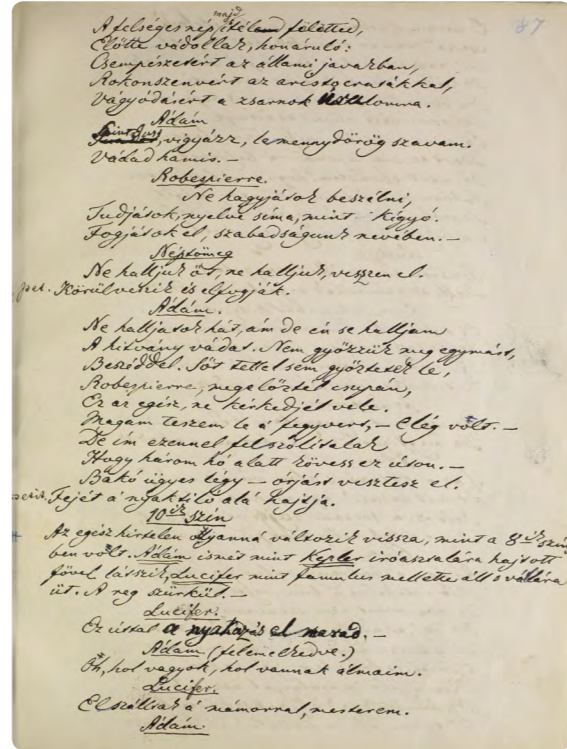 87
majd
A felséges nép ítéland fölötted,
Előtte vádollak, honáruló:
Csempészetért az állami javakban,
Rokonszenvért az aristocratákkal,
Vágyódásért a zsarnok uralomra.
Ádám
Saint-Just, vigyázz, lemennydörög szavam.
Vádad hamis. –
Robespierre.
Ne hagyjátok beszélni,
Tudjátok, nyelve síma, mint kígyó.
Fogjátok el, szabadságunk nevében. –
Néptömeg
Ne halljuk őt, ne halljuk, vesszen el.
Körülveszik és elfogják.
Ádám.
Ne halljatok hát, ám de én se halljam
A hitvány vádat. Nem győzzük meg egymást,
Beszéddel. Sőt tettel sem győztetek le,
Robespierre, megelőztél csupán,
Ez az egész, ne kérkedjél vele.
Magam teszem le a fegyvert, – elég volt. –
De ím ezennel felszólítalak
Hogy három hó alatt kövess ez úton. –
Bakó ügyes légy – óriást vesztesz el.
Fejét a nyaktiló alá hajtja.
10ik szín
Az egész hirtelen ollyanná változik vissza, mint a 8ik szín
ben volt. Ádám ismét mint Kepler íróasztalára hajtott
fővel látszik, Lucifer mint famulus mellette áll s vállára
üt. A reg szürkül. –
Lucifer.
Ez úttal a nyakazás el marad. –
Ádám (felemelkedve.)
Oh, hol vagyok, hol vannak álmaim.
Lucifer.
Elszálltak a mámorral, mesterem.
Ádám.